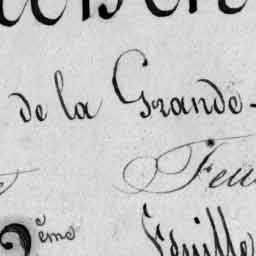 de la Grande-
Feu
2ème
Feuille